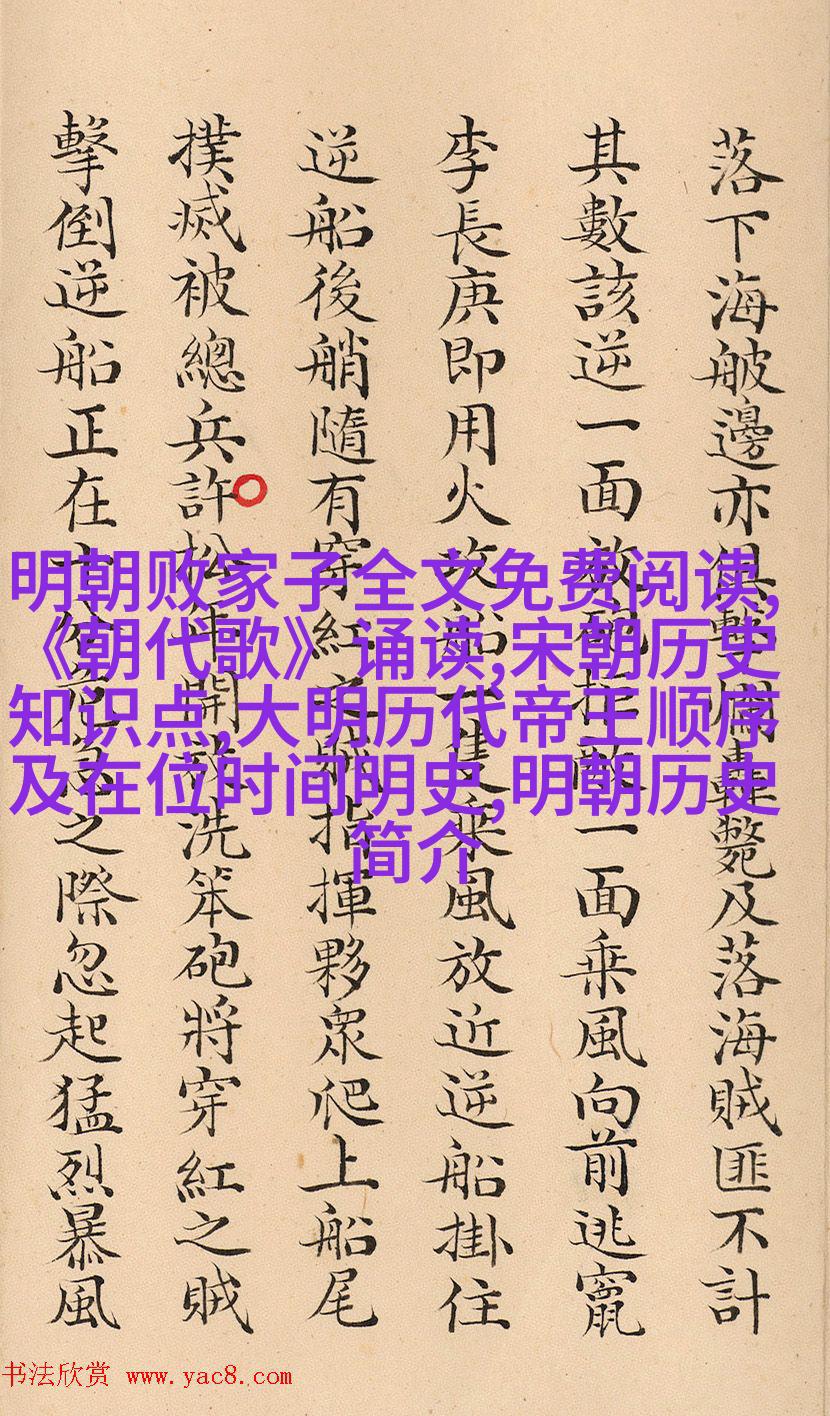 落下海邊亦俱擊爛轟斃及落海賊匪不計
其數該逆一面放砲拒敵一面乘風向前逃竄
李長庚即用火攻船一隻乘風放近逆船掛住
逆船後艄隨有穿紅衣賊指揮夥衆爬上船尾
撲滅被總兵許松年開放洗笨砲將穿紅之賊
擊倒逆船正在十分危急之際忽起猛烈暴風
明朝败家子全文免费阅读,
《朝代歌》诵读,宋朝历史
知识点,大明历代帝王顺序
及在位时间明史,明朝历史
简介
书法欣赏 www.yac8.com